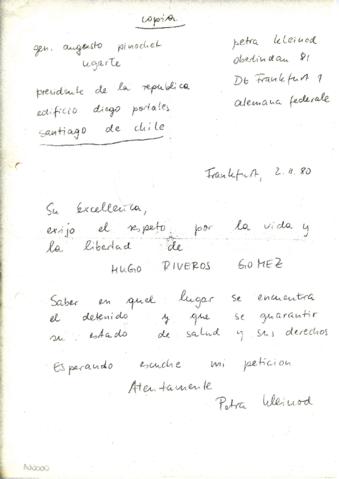 copia
gen. augusto pinochet
ugarte
presidente de la republica
edificio diego portales
santiago de chile
petra kleinod
oberlindau 81
D6 Frankfurt 1
alemana federale
Frankfurt, 2.11.80
Su Excellencia,
exijo el respeto por la vida y
la libertad de
HUGO RIVEROS GOMEZ
Saber en quel lugar se encuentra
el detenido y que se guarantir
su estado de salud y sus derechos
Esperando escuche mi peticion
Atentamente
Petra Kleinod